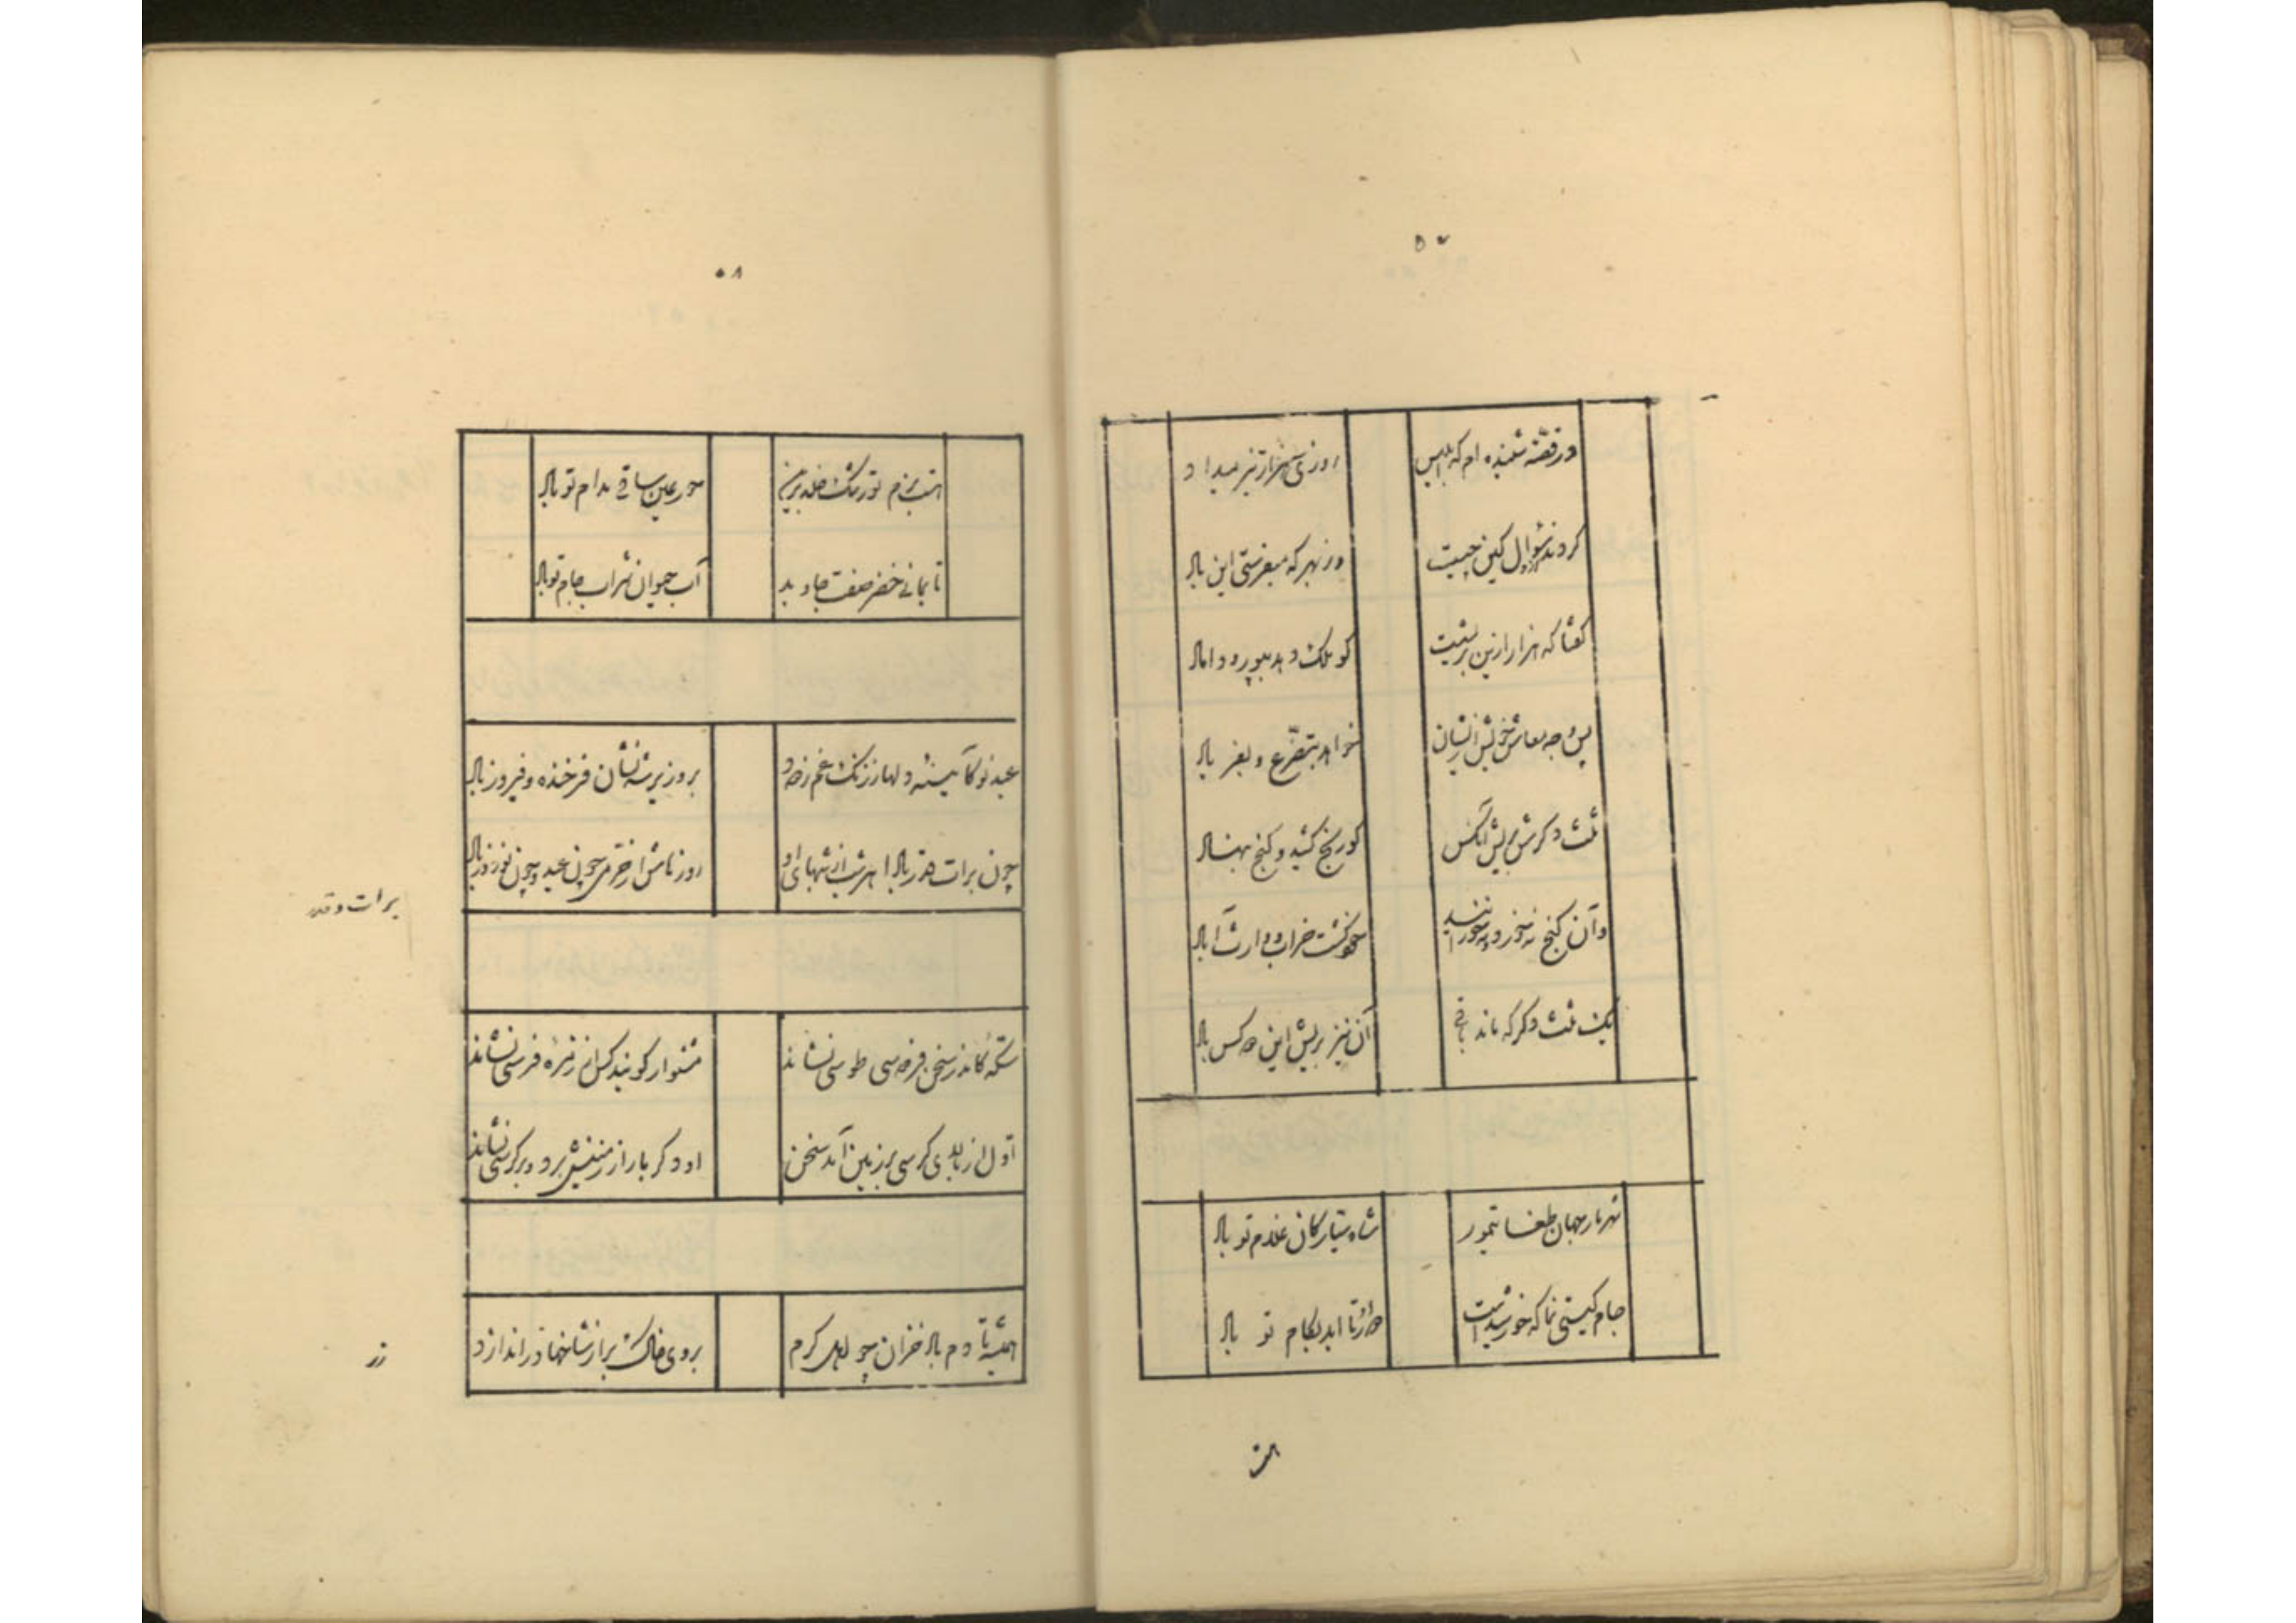 ۵۷
در قصه شنیده ام که ابلیس
روزی سه هزار تیز میداد
کردند سؤال کین چیست
وز بهر که میفرستی این باد
گفتا که هزار ازین بریشت
کو ملک دهد بپور و داماد
پس وجه معاش خویش ازیشان
خواهد بتضرع و بفریاد
ثلث دگرش بریش آنکس
کو رنج کشید و گنج بنهاد
وآن گنج نه خورد و نه خورانید
خود گشت خراب و وارث آباد
یک ثلث دگر که ماند باقی
آن نیز بریش این دو کس باد
شهریار جهان طغا تیمور
شاه سیارگان غلام تو باد
جام گیتی نما که خورشیدست
دائر تا ابد بکام تو باد
۵۸
هست بزم تو رشک خلد برین
حور عین ساقی مدام تو باد
تا بمانی خضر صفت جاوید
آب حیوان شراب جام تو باد
عید نو کآیینه دلها ز زنگ غم زدود
بر وزیر شه نشان فرخنده و فیروز باد
چون برات قدر بادا هر شب از شبهای او
روزهاش از خرمی چون عید و چون نوروز باد
برات و قدر
سکه کاندر سخن فردوسی طوسی نشاند
اول از بالای کرسی بر زمین آمد سخن
او دگر بار از زمینش برد و بر کرسی نشاند
همیشه تا دم باد خزان چو اهل کرم
بروی خاک بر از شاخها زر اندازد
زر